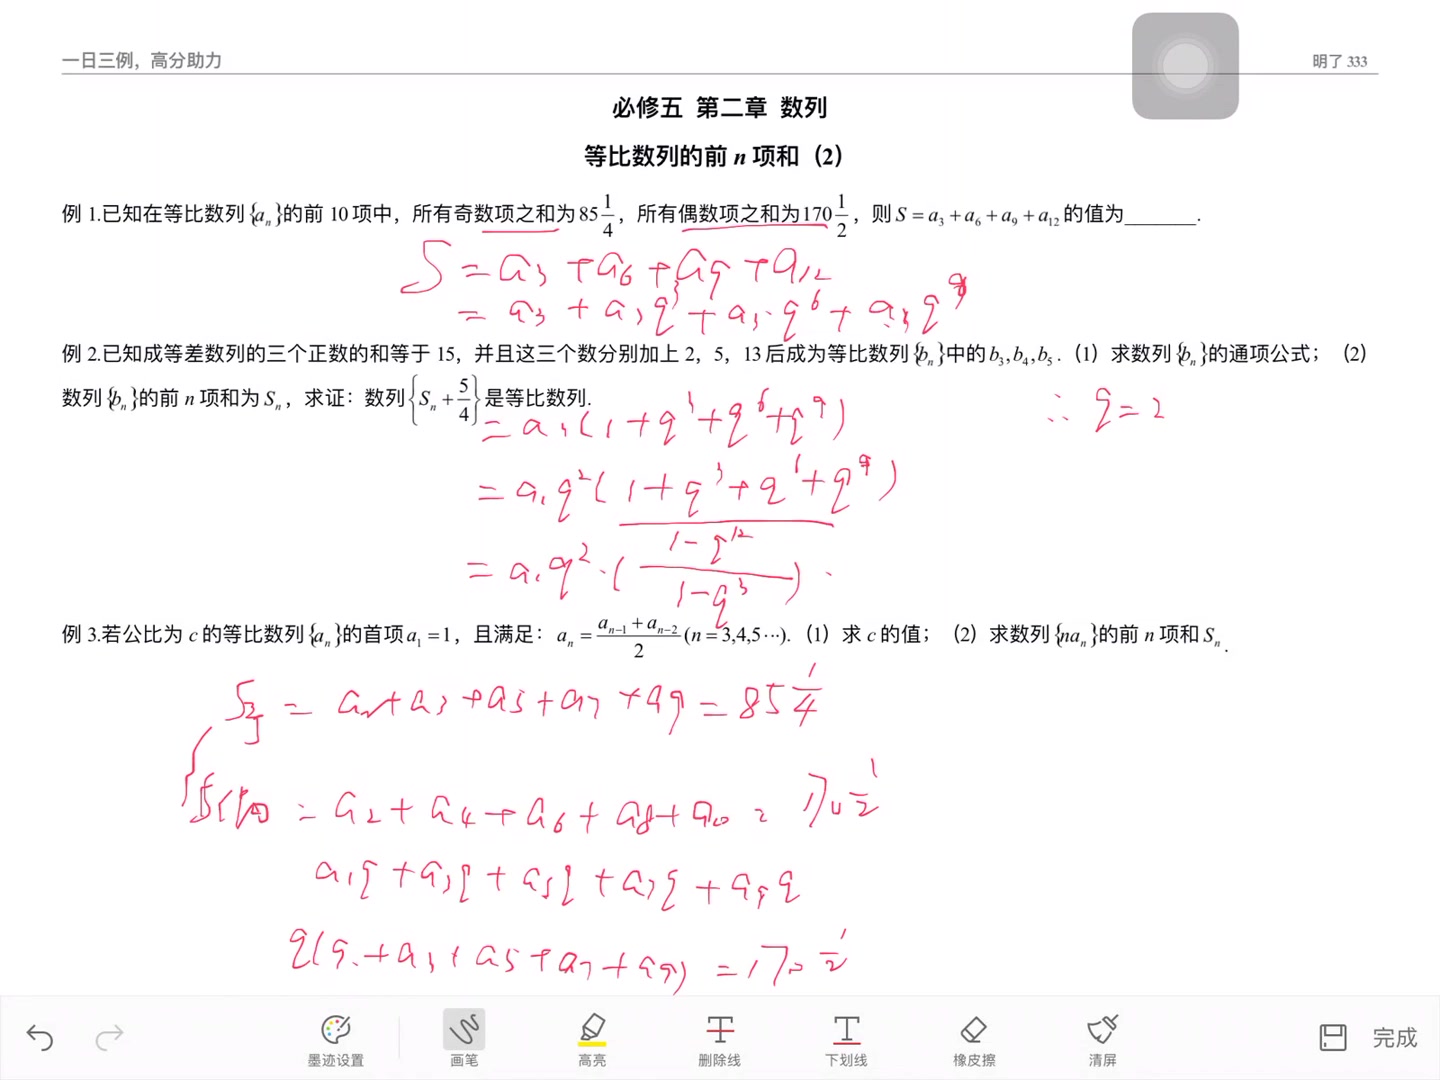 一日三例，高分助力
明了 333
必修五 第二章 数列
等比数列的前 n 项和（2）
例 1.已知在等比数列{aₙ}的前 10 项中，所有奇数项之和为85 1/4，所有偶数项之和为170 1/2，则 S = a₃ + a₆ + a₉ + a₁₂ 的值为_______.
S = a₃ + a₆ + a₉ + a₁₂
= a₃ + a₃q³ + a₃·q⁶ + a₃q⁹
例 2.已知成等差数列的三个正数的和等于 15，并且这三个数分别加上 2，5，13 后成为等比数列{bₙ}中的b₃,b₄,b₅.（1）求数列{bₙ}的通项公式；（2）
数列{bₙ}的前 n 项和为 Sₙ，求证：数列{Sₙ + 5/4}是等比数列.
∴ q = 2
= a₃(1+q³+q⁶+q⁹)
= a₁q²(1+q³+q⁶+q⁹)
= a₁q²·((1-q¹²)/(1-q³)).
例 3.若公比为 c 的等比数列{aₙ}的首项a₁ =1，且满足：aₙ = (aₙ₋₁ + aₙ₋₂)/2 (n = 3,4,5⋯).（1）求 c 的值；（2）求数列{naₙ}的前 n 项和 Sₙ.
+a₃ +a₅ +a₇ +a₉ = 85 1/4
= a₂ + a₄ + a₆ + a₈ + a₁₀ = 170 1/2
a₁q + a₃q + a₅q + a₇q + a₉q
q(a₁ + a₃ + a₅ + a₇ + a₉) = 170 1/2
墨迹设置
画笔
高亮
删除线
下划线
橡皮擦
清屏
完成